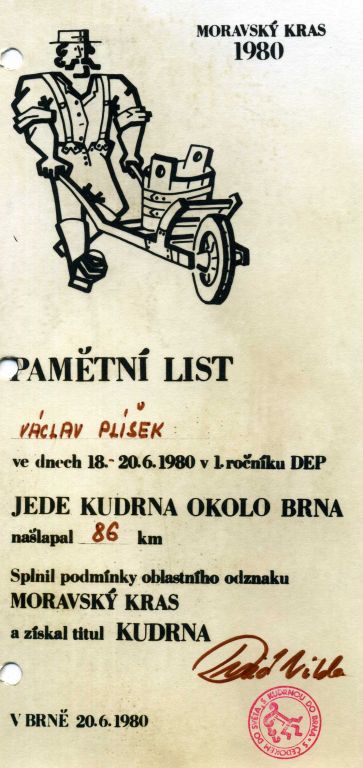 MORAVSKÝ KRAS
1980
PAMĚTNÍ LIST
VÁCLAV PLÍŠEK
ve dnech 18.- 20.6.1980 v 1. ročníku DEP
JEDE KUDRNA OKOLO BRNA
našlapal 86 km
Splnil podmínky oblastního odznaku
MORAVSKÝ KRAS
a získal titul KUDRNA
V BRNĚ 20.6.1980
S ČEDOKEM DO SVĚTA, S KUDRNOU DO BRNA